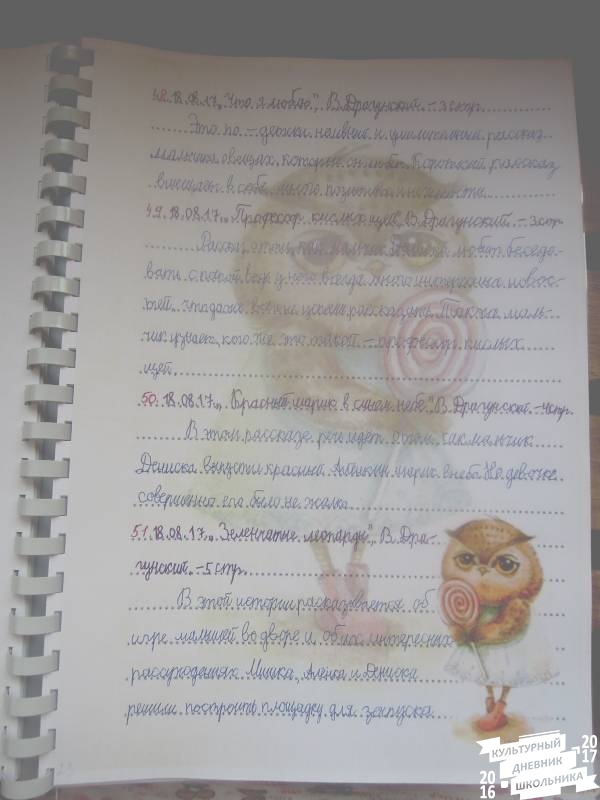 48. 18.08.17. „Что я люблю", В. Драгунский. – 3 стр.
Это по – детски наивный и рассказ
мальчика о вещах, которые он любит. Короткий рассказ
в себе много позитива и нежности.
49. 18.08.17. „Профессор кислых щей", В. Драгунский. – 3 стр.
Рассказ о том, как мальчик и папа могут беседо-
вать с папой, ведь у него всегда много интересных новос-
тей, рассказать. Также маль-
чик узнает, кто же это такой – профессор кислых
щей.
50. 18.08.17. „Красный шарик в синем небе". В. Драгунский. – 4 стр.
В этом рассказе речь идет о том, как мальчик
Дениска выпустил красивый Алёнкин шарик в небо. Но девочке
совершенно его было не жалко.
51. 18.08.17. „Зеленчатые леопарды", В. Дра-
гунский. – 5 стр.
В этой истории рассказывается об
игре малышей во дворе и об их интересных
рассуждениях. Мишка, Алёнка и Дениска
решили построить площадку для запуска.
23
КУЛЬТУРНЫЙ
ДНЕВНИК
ШКОЛЬНИКА
2016
2017